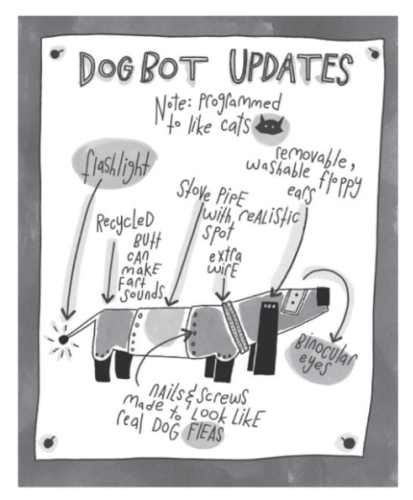 DOGBOT UPDATES
Note: Programmed
to like cats
flashlight
RECYCLED
BUTT
CAN
MAKE
FART
SOUNDS
Stove PiPE
with reALiStic
SPOT
extra
wirE
removable,
washable floppy
ears
BiNOCUlar
eyes
nAils & Screws
made to Look LikE
real DOG FlEAS